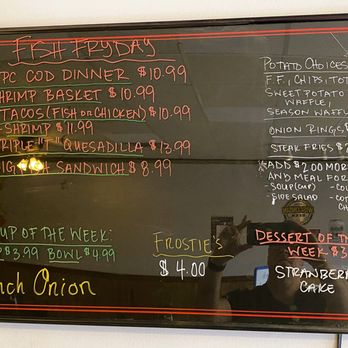 FISH FRYDAY
PC COD DINNER $10.99
SHRIMP BASKET $10.99
TACOS (FISH OR CHICKEN) $10.99
-SHRIMP $11.99
RIPLE "T" QUESADILLA $13.99
SANDWICH $8.99
UP OF THE WEEK:
$3.99 BOWL $4.99
nch Onion
FROSTIE'S
$4.00
POTATO CHOICES
F.F., CHIPS, TOT
SWEET POTATO
WAFFLE,
SEASON WAFFLE
ONION RINGS $
STEAK FRIES $2
*ADD $2.00 MORE
AND MEAL FOR
-SOUP (CUP) -COL
-SIDE SALAD -COT
CH
DESSERT OF THE
WEEK $3
STRAWBERR
CAKE